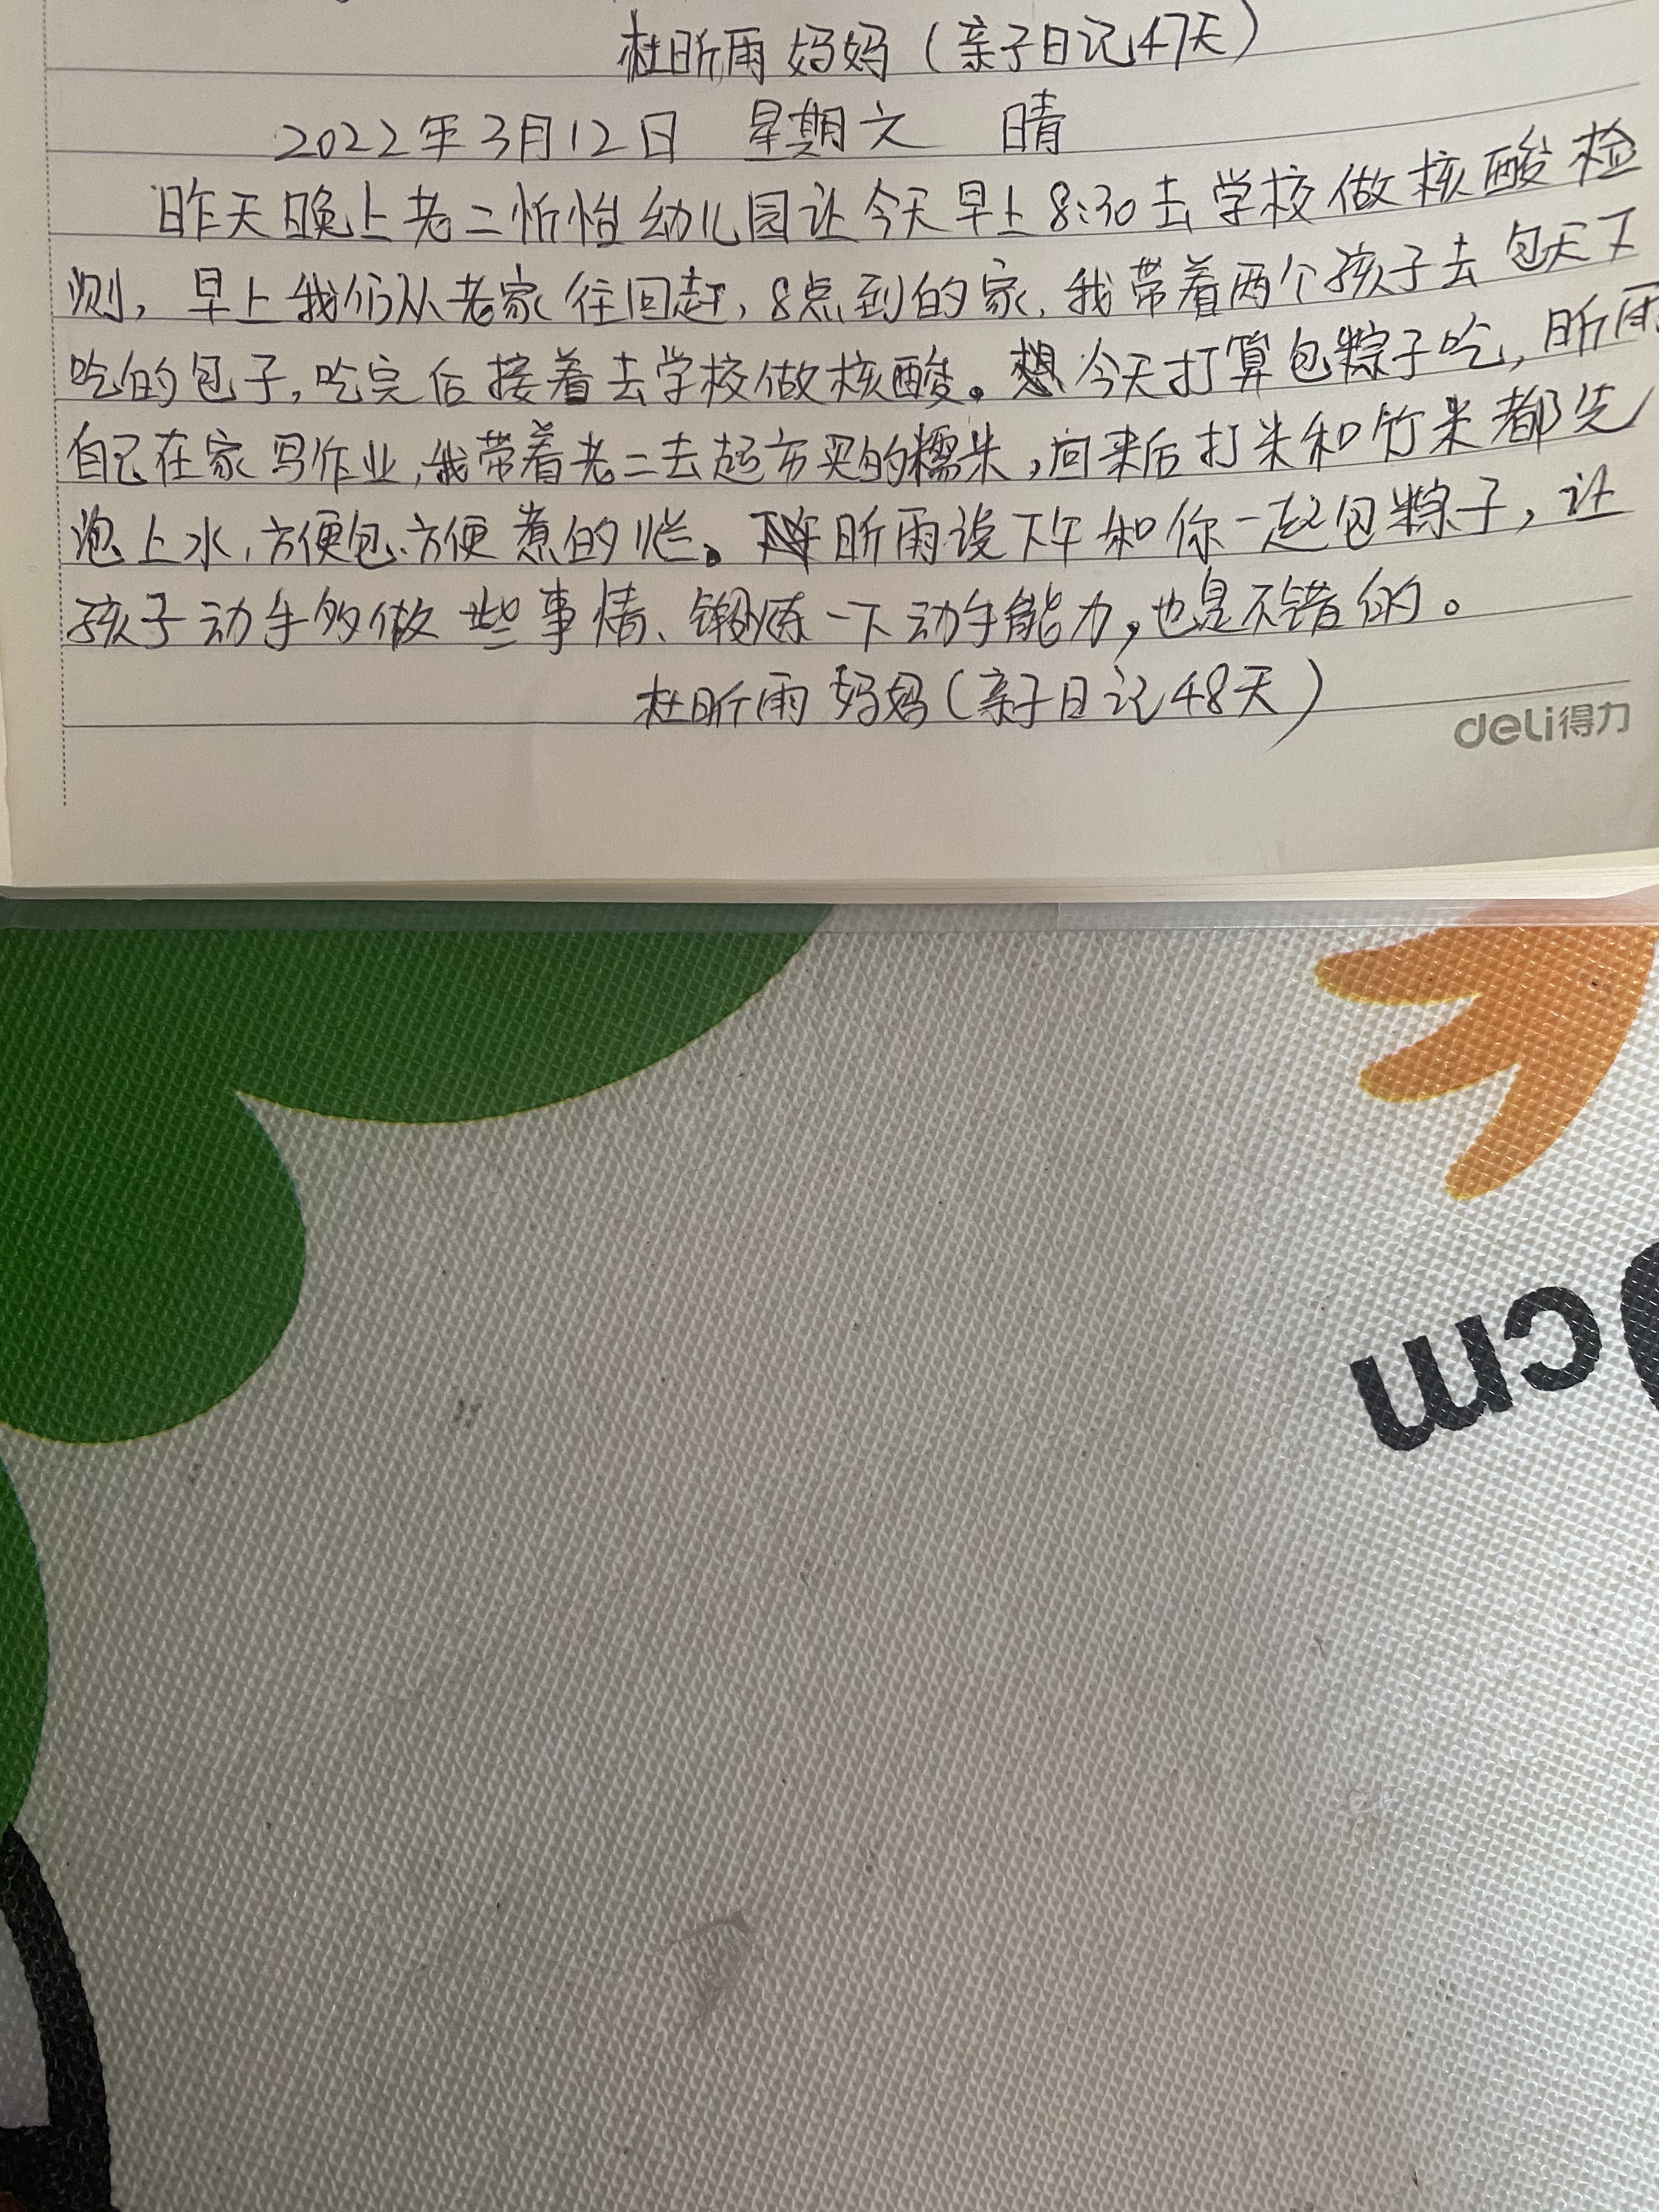 杜昕雨妈妈（亲子日记47天）
2022年3月12日 星期六 晴
昨天晚上老二忻怡幼儿园让今天早上8:30去学校做核酸检
测，早上我们从老家往回赶，8点到的家，我带着两个孩子去包天下
吃的包子，吃完后接着去学校做核酸。想今天打算包粽子吃，昕雨
自己在家写作业，我带着老二去超市买的糯米，回来后打米和竹米都先
泡上水，方便包、方便煮的烂。昕雨说下午和你一起包粽子，让
孩子动手多做些事情、锻炼一下动手能力，也是不错的。
杜昕雨妈妈（亲子日记48天）
deli得力
cm